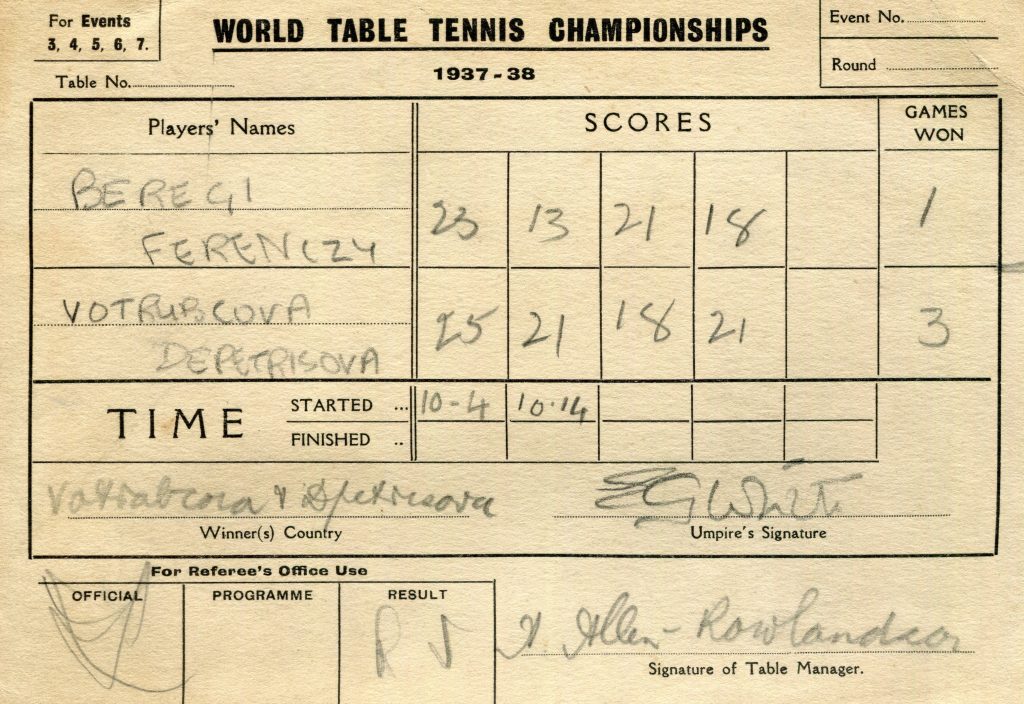 For Events
3, 4, 5, 6, 7.
WORLD TABLE TENNIS CHAMPIONSHIPS
1937-38
Event No.
Round
Table No.
Players' Names
SCORES
GAMES
WON
BEREGI
FERENCZY
23 13 21 18 1
VOTRUBCOVA
DEPETRISOVA
25 21 18 21 3
TIME
STARTED ... 10-4 10.14
FINISHED ..
Votrubcova & Depetrisova
EG White
Winner(s) Country
Umpire's Signature
For Referee's Office Use
OFFICIAL
PROGRAMME
RESULT
R
Allen-Rowlandson
Signature of Table Manager.